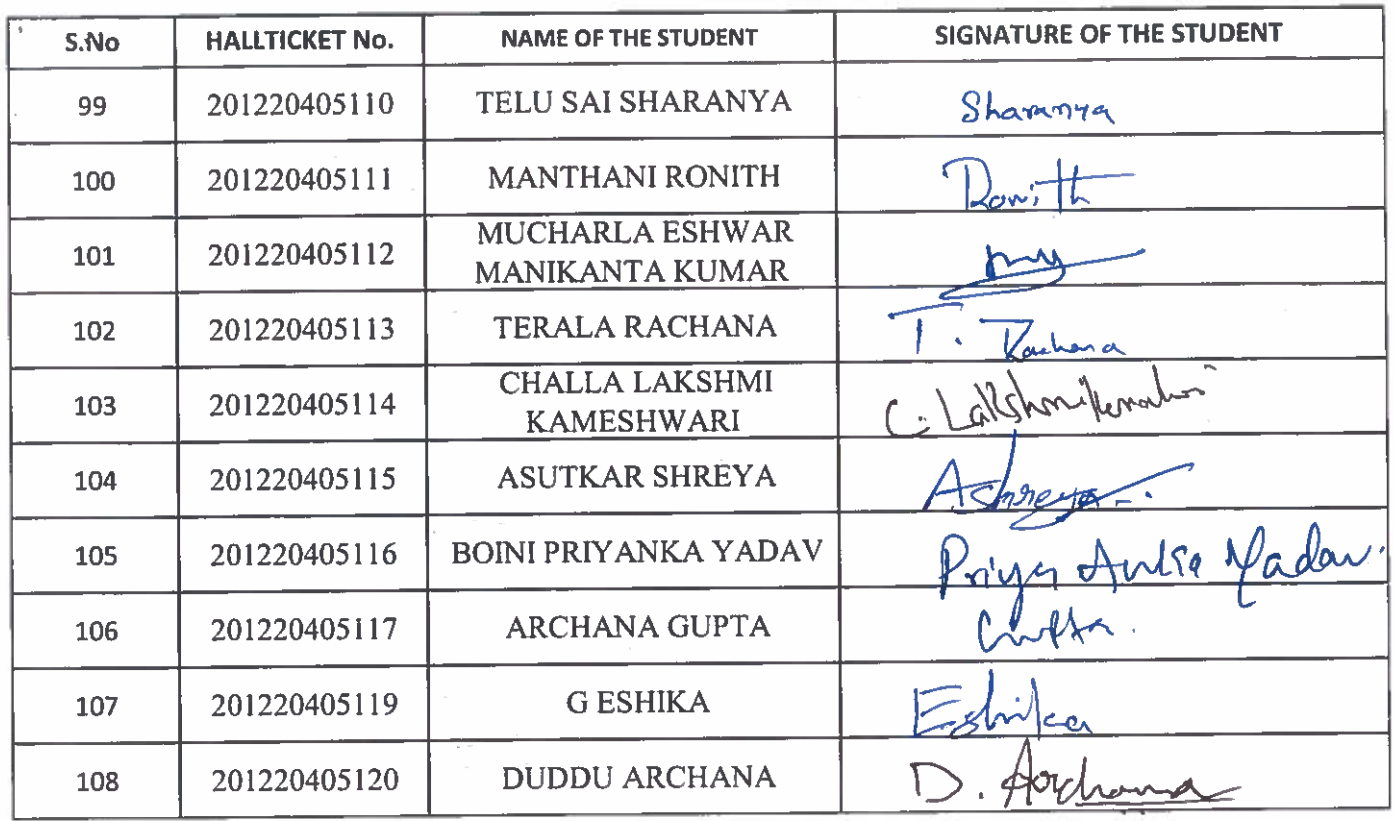 S.No HALLTICKET No. NAME OF THE STUDENT SIGNATURE OF THE STUDENT
99 201220405110 TELU SAI SHARANYA Sharanya
100 201220405111 MANTHANI RONITH Ronith
101 201220405112 MUCHARLA ESHWAR
MANIKANTA KUMAR
102 201220405113 TERALA RACHANA T. Rachana
103 201220405114 CHALLA LAKSHMI
KAMESHWARI C. Lakshmi
104 201220405115 ASUTKAR SHREYA AShreya
105 201220405116 BOINI PRIYANKA YADAV Priya Yadav
106 201220405117 ARCHANA GUPTA Gupta.
107 201220405119 G ESHIKA Eshika
108 201220405120 DUDDU ARCHANA D. Archana